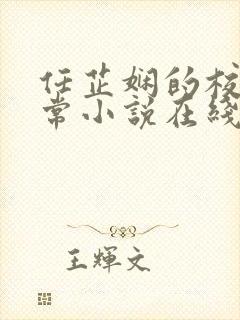 任芷娴的校
常小說在綫
王輝文